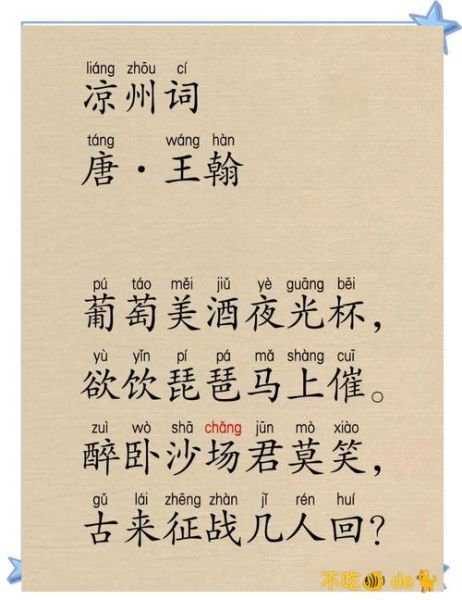 liáng zhōu cí
凉州词
táng wáng hàn
唐·王翰
pú táo měi jiǔ yè guāng bēi
葡萄美酒夜光杯，
yù yǐn pí pá mǎ shàng cuī
欲饮琵琶马上催。
zuì wò shā chǎng jūn mò xiào
醉卧沙场君莫笑，
gǔ lái zhēng zhàn jǐ rén huí
古来征战几人回？
不吃🐠de🐈